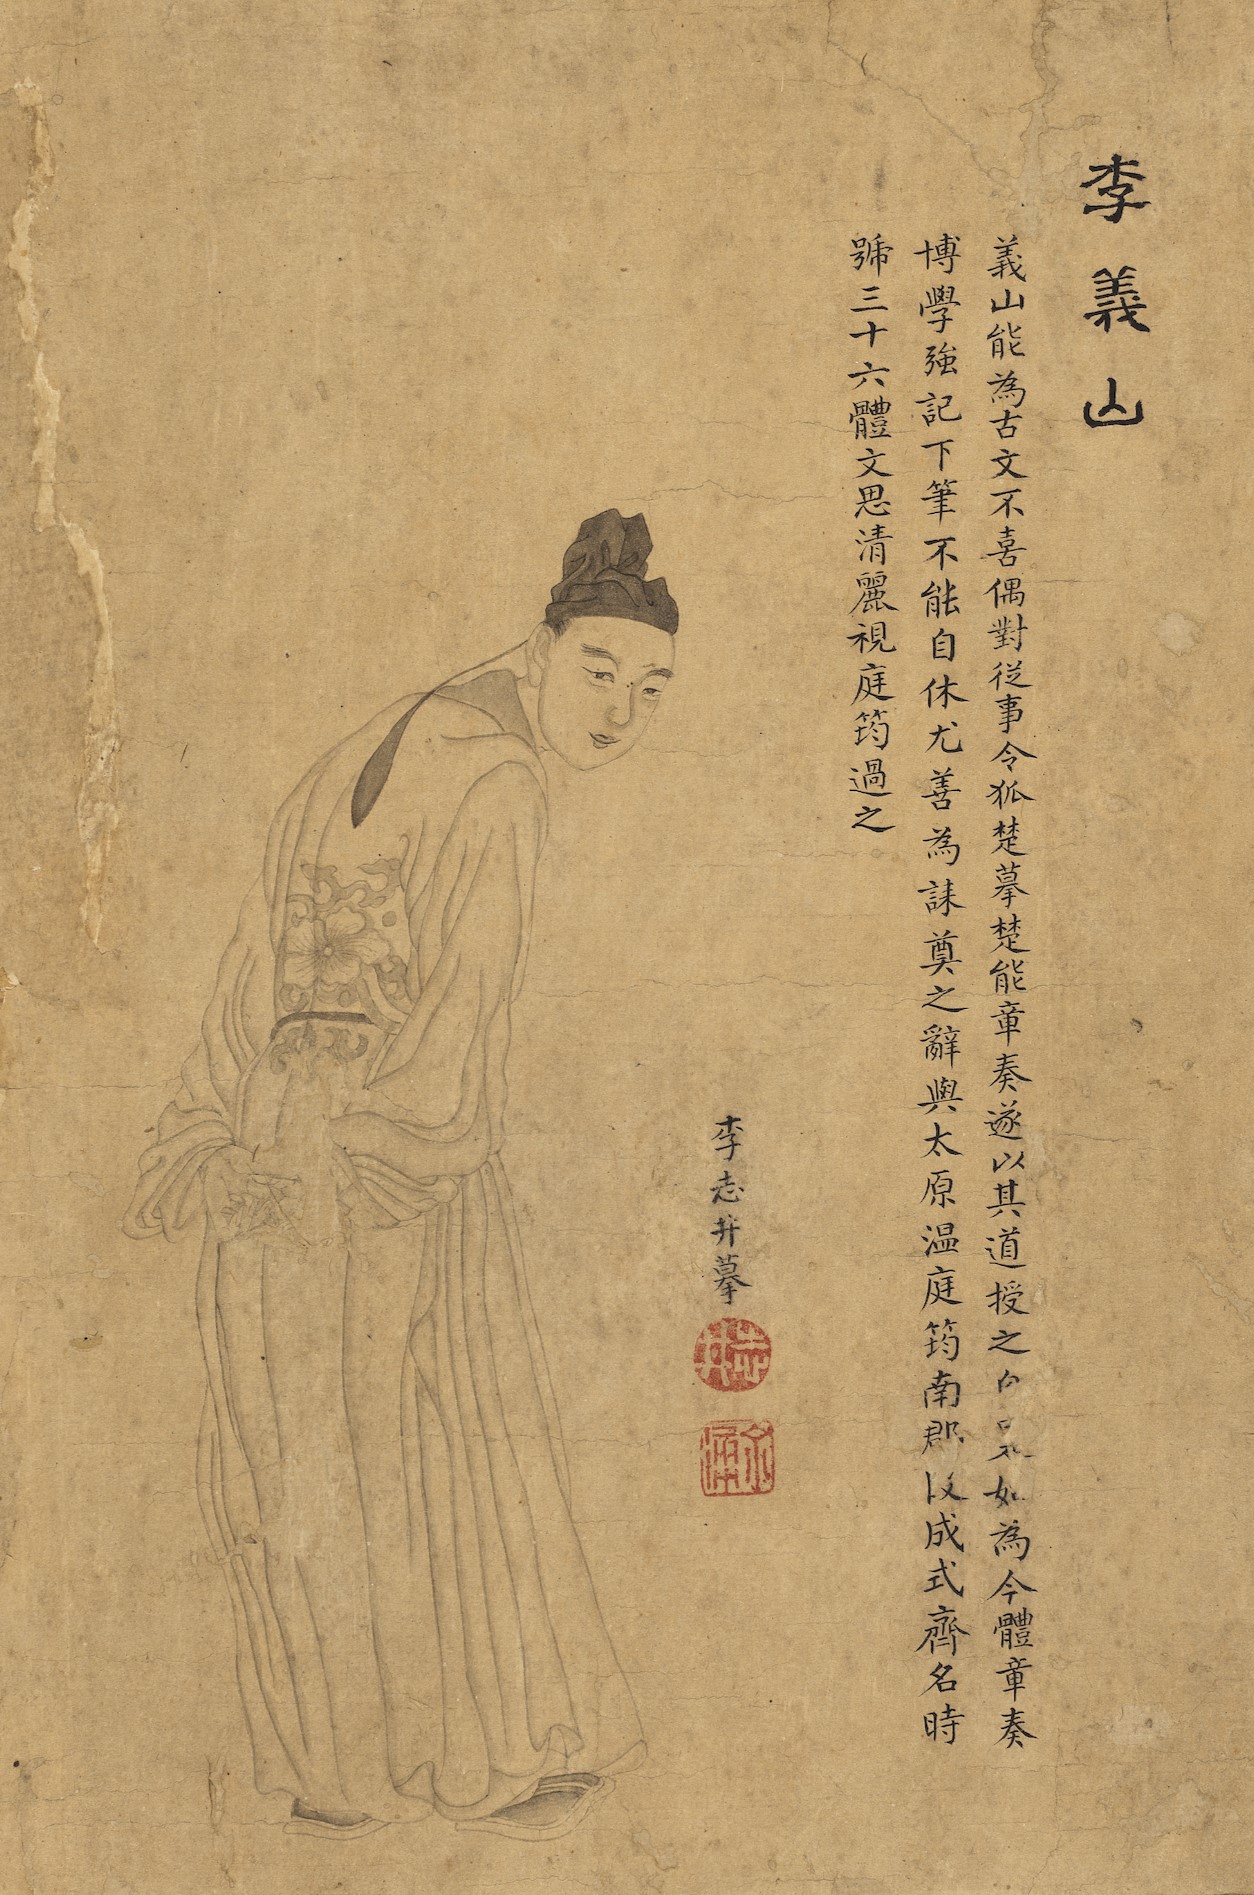 李義山
義山能為古文不喜偶對從事令狐楚摹楚能章奏遂以其道授之為今體章奏
博學強記下筆不能自休尤善為誄奠之辭與太原温庭筠南郡段成式齊名時
號三十六體文思清麗視庭筠過之
李志井摹
志井